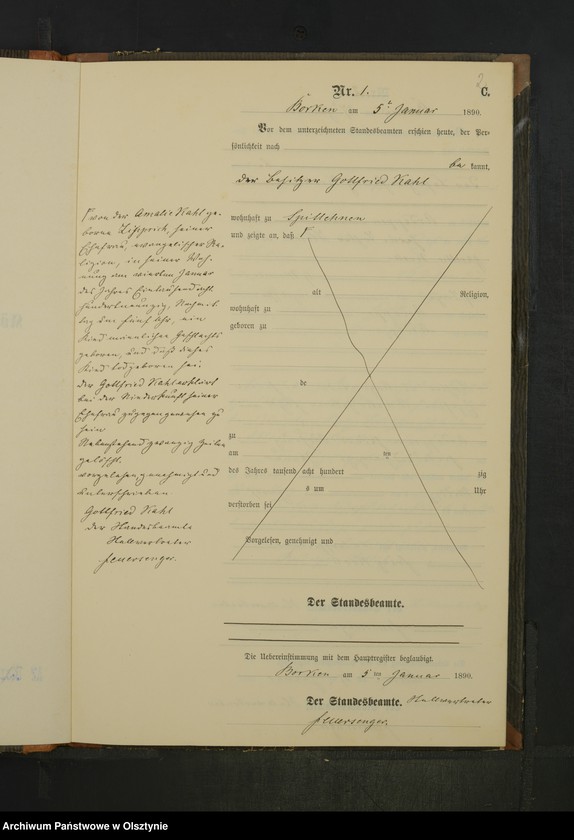 2
Nr. 1. C.
Borken am 5ten Januar 1890.
Vor dem unterzeichneten Standesbeamten erschien heute, der Per-
sönlichkeit nach
be kannt,
der Besitzer Gottfried Kahl
wohnhaft zu Spittehnen
und zeigte an, daß Γ
alt Religion,
wohnhaft zu
geboren zu
de
zu
am ten
des Jahres tausend acht hundert zig
s um Uhr
verstorben sei
Vorgelesen, genehmigt und
Der Standesbeamte.
Γ von der Amalie Kahl ge-
borene Lipprich, seiner
Ehefrau, evangelischer Re-
ligion, in seiner Woh-
nung am vierten Januar
des Jahres Eintausendacht
hundertneunzig, Nachmit-
tag um fünf Uhr, ein
Kind männlichen Geschlechts
geboren, und daß dieses
Kind todtgeboren sei;
der Gottfried Kahl erklärt
bei der Niederkunft seiner
Ehefrau zugegen gewesen zu
sein
Nebenstehend zwanzig Zeilen
gelöscht.
vorgelesen genehmigt und
unterschrieben
Gottfried Kahl
der Standesbeamte
Stellvertreter
Feuersenger.
Die Uebereinstimmung mit dem Hauptregister beglaubigt.
Borken am 5ten Januar 1890.
Der Standesbeamte. Stellvertreter
Feuersenger.
Archiwum Państwowe w Olsztynie